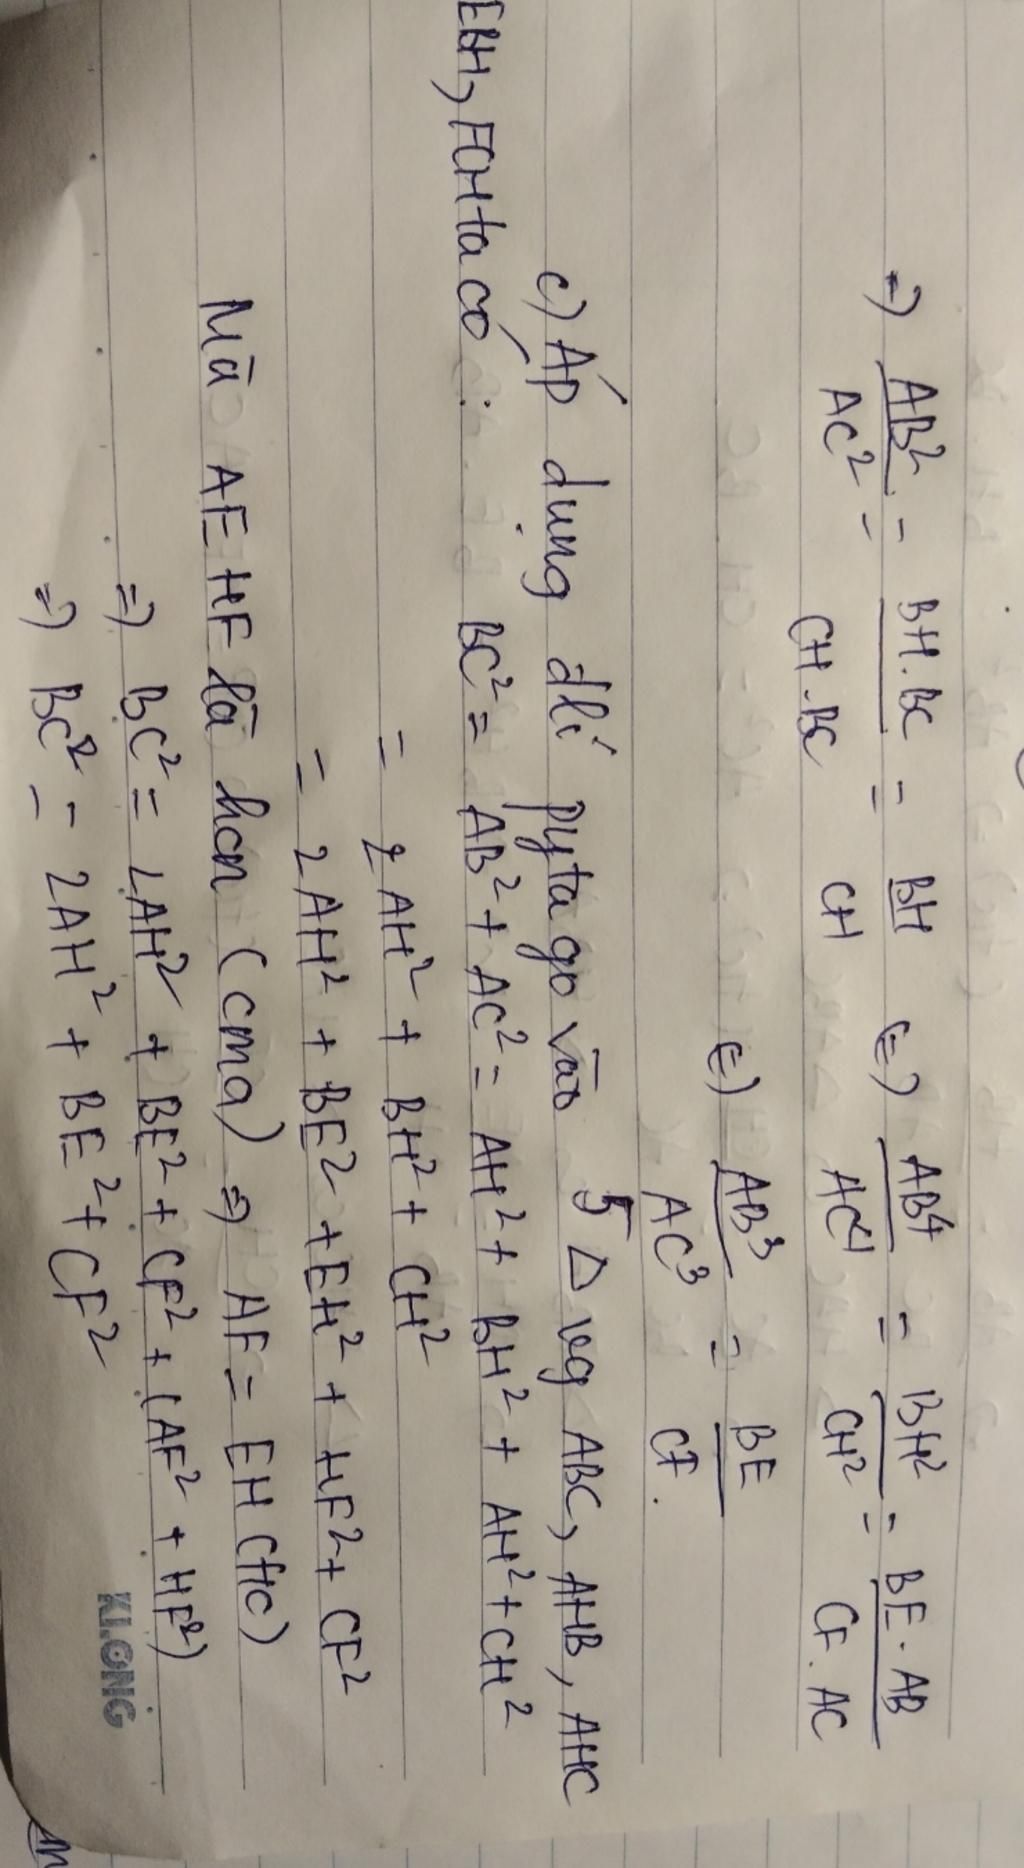 =) AB²/AC² = BH.BC/CH.BC = BH/CH (=) AB⁴/AC⁴ = BH²/CH² = BE.AB/CF.AC
(=) AB³/AC³ = BE/CF.
c) Áp dụng đlí pytago vào 5 Δ vg ABC, AHB, AHC
EBH, FCH ta có:
BC² = AB² + AC² = AH² + BH² + AH² + CH²
= 2AH² + BH² + CH²
= 2AH² + BE² + EH² + HF² + CF²
Mà AEHF là hcn (cma) =) AF = EH (t/c)
=) BC² = 2AH² + BE² + CF² + (AF² + HF²)
=) BC² = 2AH² + BE² + CF²
KLONG